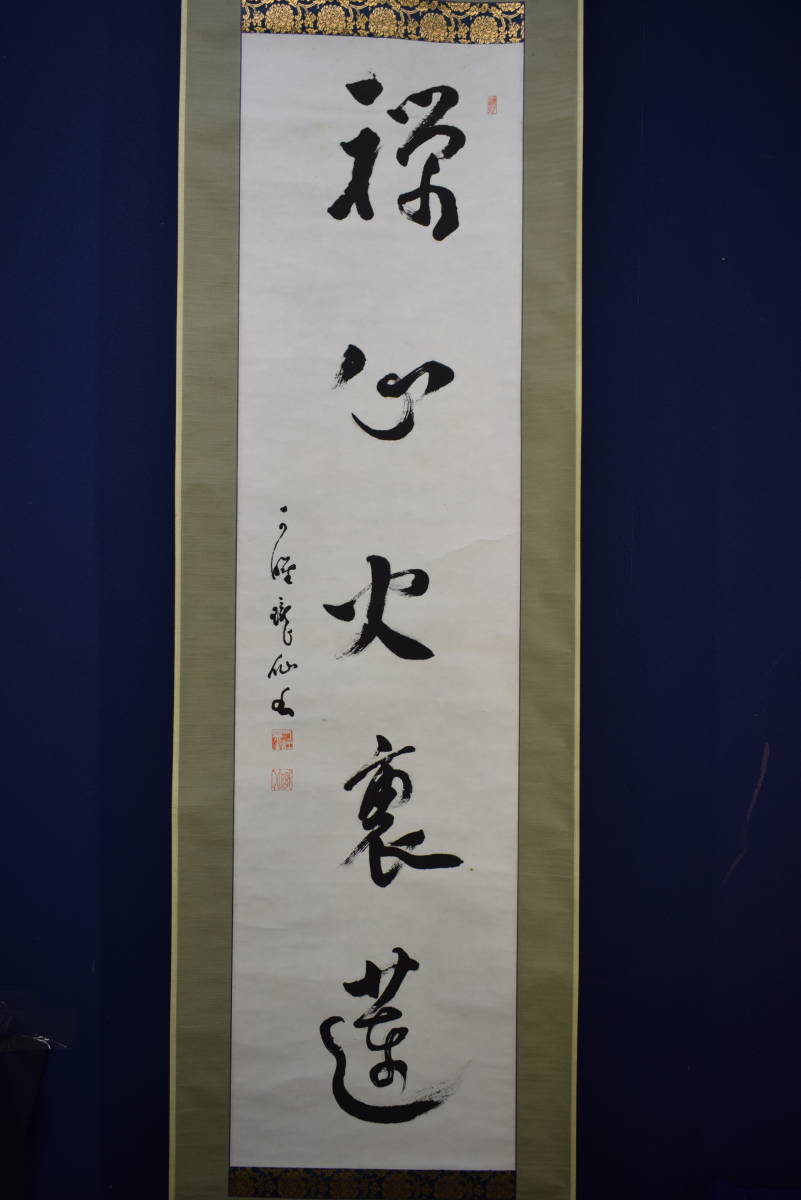 禅心火裏蓮
龍仙書